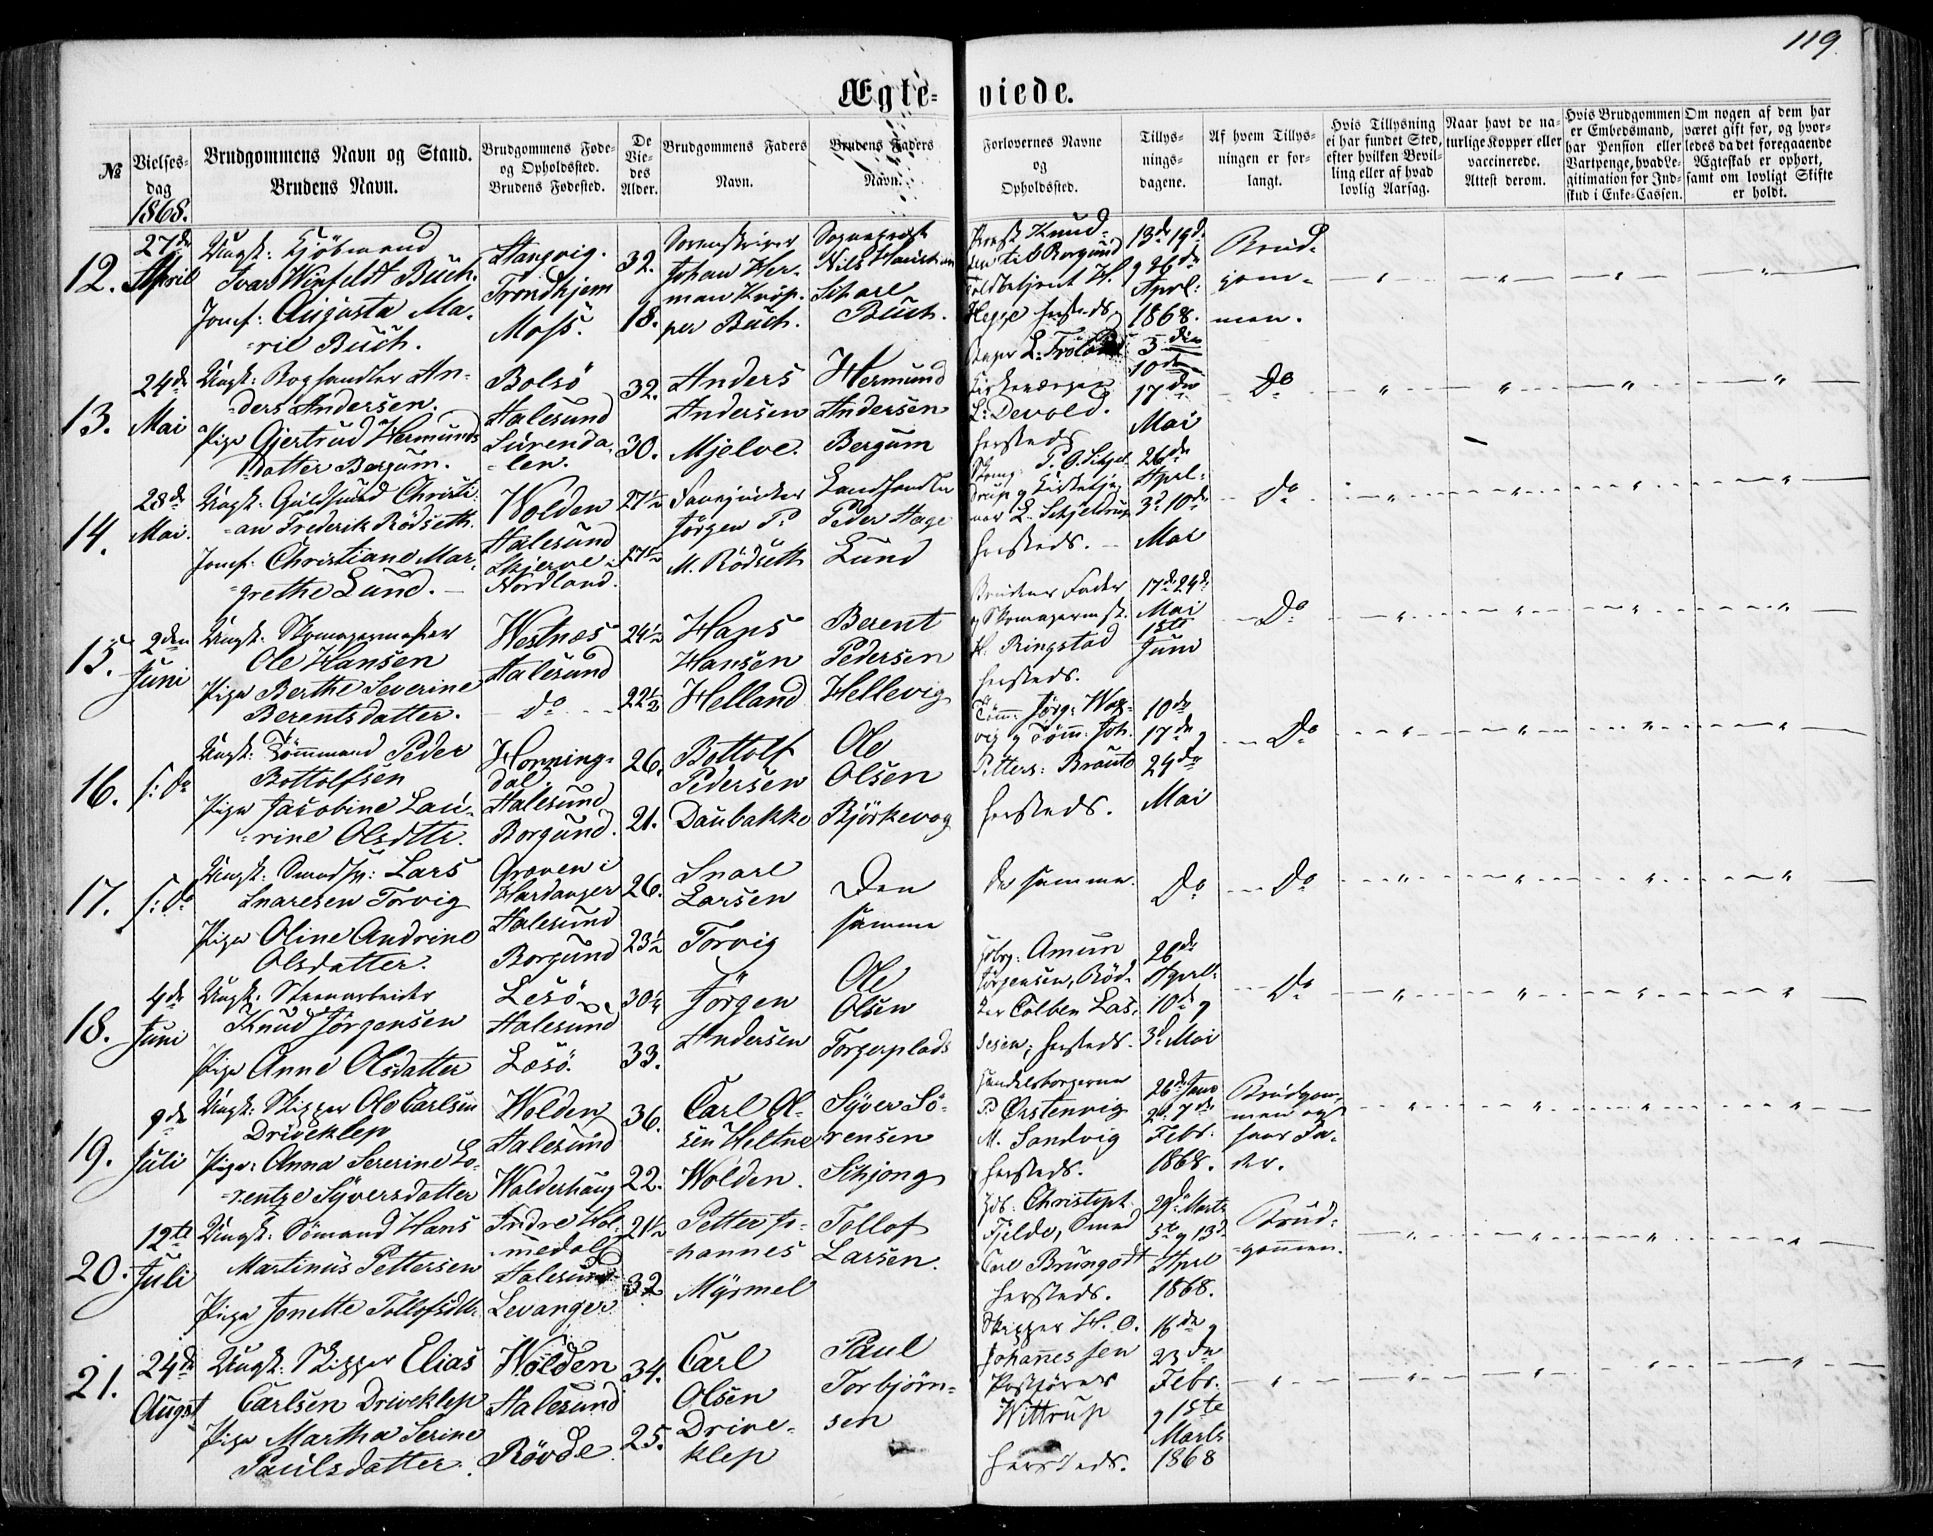 119.
Ægteviede.
№
Vielsesdag
1868.
Brudgommens Navn og Stand.
Brudens Navn.
Brudgommens Føde- og Opholdssted.
Brudens Fødested.
De Viedes Alder.
Brudgommens Faders Navn.
Brudens Faders Navn.
Forlovernes Navne og Opholdssted.
Tillysningsdagene.
Af hvem Tillysningen er forlangt.
Hvis Tillysning ei har fundet Sted, efter hvilken Bevilling eller af hvad lovlig Aarsag.
Naar havt de naturlige Kopper eller vaccinerede. Attest derom.
Hvis Brudgommen er Embedsmand, har Pension eller Vartpenge, hvad Legitimation for Indskud i Enke-Cassen.
Om nogen af dem har været gift før, og hvorledes da det foregaaende Ægteskab er ophørt, samt om lovligt Skifte er holdt.
12.
27de April
Ungk: Kjöbmand
Ivar Winfeldt Buch.
Jomf: Augusta Ma-
=rie Buch.
Stangvig.
Trondhjem
Moss.
32.
18.
Sorenskriver
Johan Her-
man Knop-
per Buch.
Sogneprest
Nils
Buch.
Prest Knud-
til Borgund
Toldbetjent H.
hersteds
13de 19de
g 26de
April:
1868.
Brud-
gom-
men.
13.
24de Mai
Ungk: Boghandler An-
=ders Andersen.
Pige Gjertrud Hermunds
datter Bergum.
Bolsö
Aalesund
Surenda-
=len.
32.
30.
Anders
Andersen
Mjelve.
Hermund
Andersen
Bergum
Kirkeværger
L: Devold.
hersteds
3die
10de
17de
Mai
Do
14.
28de Mai.
Ungk: Guldsmed Christi-
=an Frederik Rödseth.
Jomf: Christiane Mar-
=grethe Lund.
Volden
Aalesund
Skjerve i
Nordland.
27½
27½
Jörgen P:
M. Rödseth
Landhandler
Peder Hage
Lund
L. Schjeldrup
hersteds.
26de
April:
3d 10de
Mai
Do
15.
2den Juni
Ungk: Skomagermester
Ole Hansen
Pige Berthe Severine
Berentsdatter.
Vestnæs
Aalesund
do
24½
22½
Hans
Hansen
Helland
Berent
Pedersen
Hellevig
Brudens Fader
g Skomagermst.
H. Ringstad
hersteds.
17de 24de
Mai
1ste
Juni
Do
16.
s: Do
Ungk: Tömmermand Peder
Bottolfsen
Pige Jacobine Lau-
=rine Olsdttr.
Horning-
dal.
Aalesund
Borgund.
26.
21.
Bottolf
Pedersen
Daubakke
Ole
Olsen
Björkevog
Tömm: Jörg:
vig g Tömm. Joh.
Petters:
hersteds.
10de
17de g
24de
Mai
Do
17.
s: Do
Ungk: Lars
Snaresen Torvig
Pige Oline Andrine
Olsdatter.
Graven i
Hardanger
Aalesund
Borgund
26.
23½
Snare
Larsen
Torvig
Den
samme
De samme.
Do
Do
18.
4de Juni
Ungk: Steenarbeider
Knud Jörgensen
Pige Anne Olsdatter
Lesö
Aalesund
Læsö.
30¼
33.
Jörgen
Andersen
Ole
Olsen
Torgerplads
Amun
Jörgensen, Böd-
ker Tolben Las-
sesen, hersteds.
26de
April:
10de g
3d Mai
Do
19.
9de Juli
Ungk: Skipper Ole Carlsen
Driveklep
Pige: Anna Severine Lo-
=rentze Syversdatter
Volden
Aalesund
Valderhaug
36.
22.
Carl Ol-
sen Heltne
Volden.
Syver Sö-
rensen
Schjong
Handelsborgerne
P Ørstenvig
M. Sandvig
hersteds.
26de Janr
2d. 7de
Febr.
1868.
Brudgom-
men og
hans Fa-
der.
20.
12te Juli
Ungk: Sömand Hans
Martinus Pettersen
Pige Jonette Tollofsdtr.
Indre Hol-
medal
Aalesund
Levanger
21½
32
Petter Jo-
=hannes
Myrmel
Tollof
Larsen.
Christoph.
Fjelde, Smed
Carl Brungodt
hersteds.
29de Marts
5te g 13d
April
1868.
Brud-
=gommen.
21.
24de August
Ungk: Skipper Elias
Carlsen Driveklep
Pige Martha Serine
Paulsdatter.
Volden
Aalesund
Rövde
34.
25.
Carl
Olsen
Drive-
klep
Paul
Torbjörn-
sen
Skipper H. O.
Johannessen
Postförer
Wittrup
hersteds.
16de g
23de
Febr.
g 1ste
Marts
1868